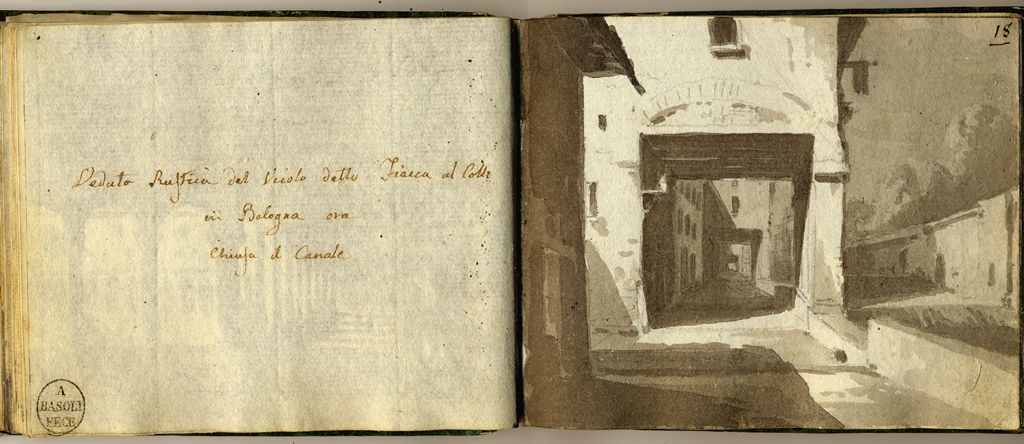 Veduta Rustica del Vicolo detto Fiacca al Collo
in Bologna ora
chiuso il Canale
A
BASOLI
FECE
18